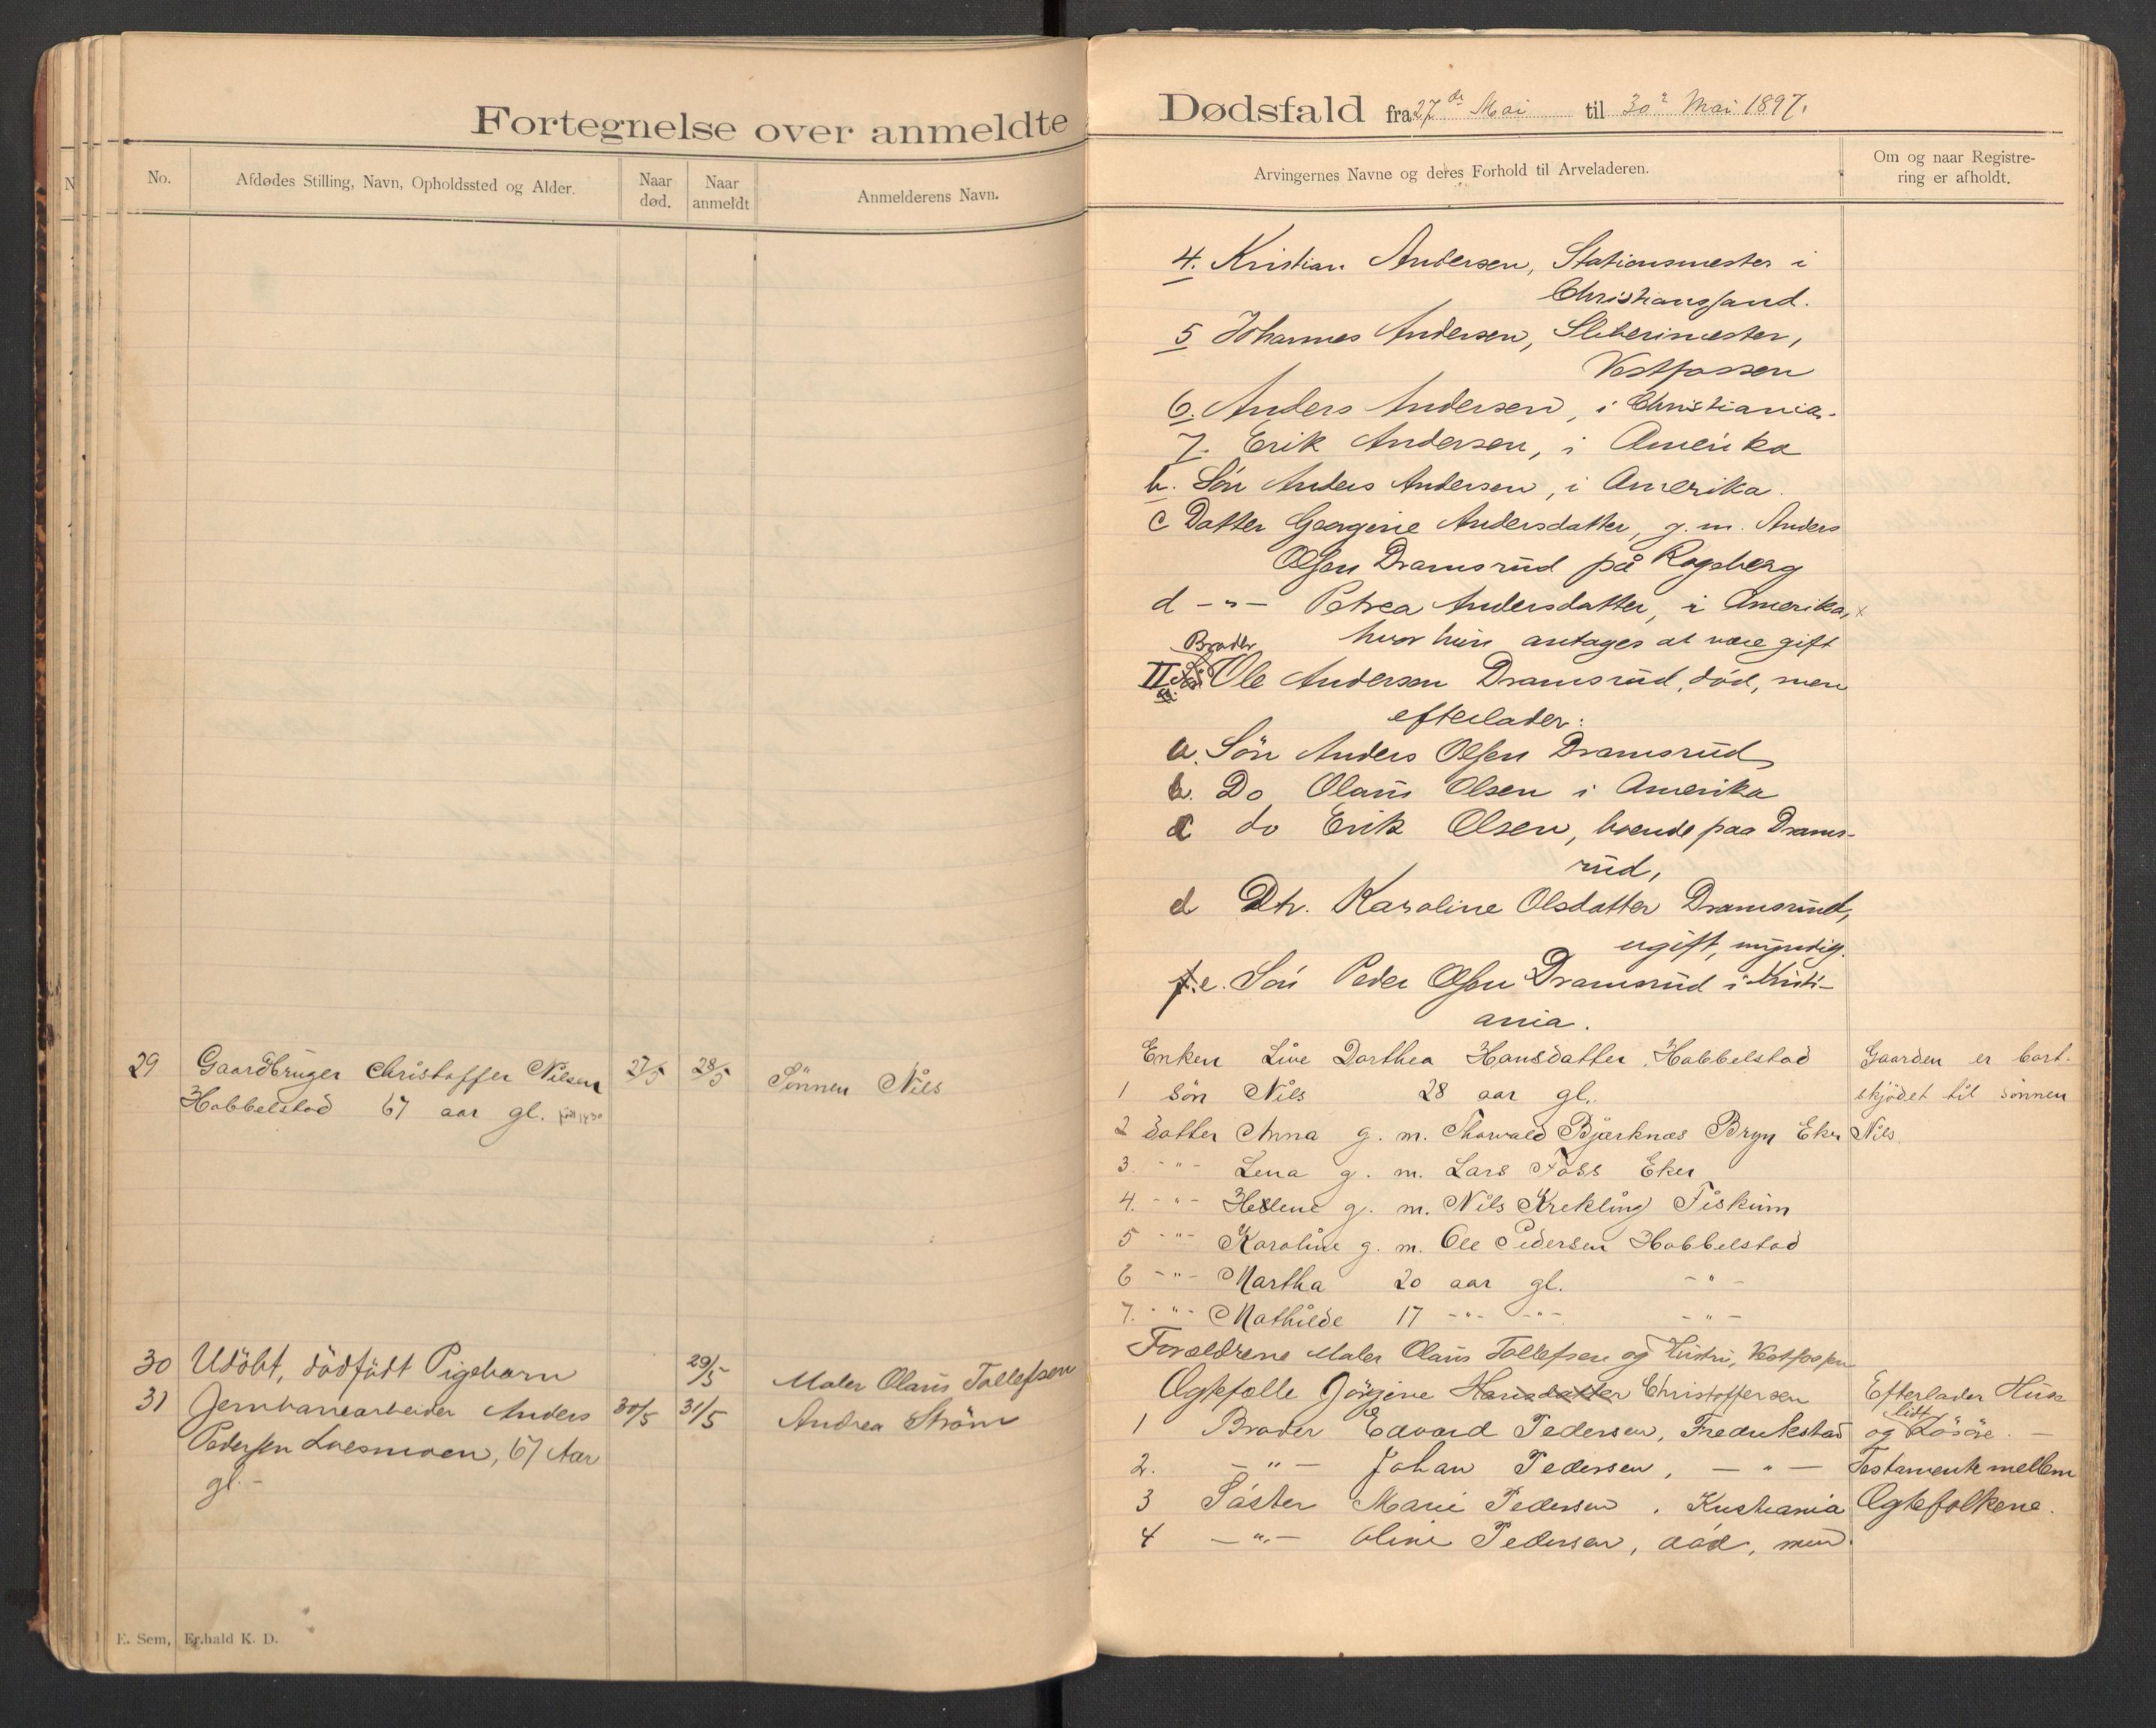 Fortegnelse over anmeldte
No.
Afdødes Stilling, Navn, Opholdssted og Alder.
Naar død.
Naar anmeldt
Anmelderens Navn.
29 Gaardbruger Christoffer Nilsen 27/5 28/5 Sönnen Nils
Hobbelstad 67 aar gl. født 1830
30 Udöbt, dödfödt Pigebarn 29/5 Maler Olaus Tollefsen
31 Jernbanearbeider Anders 30/5 31/5 Andrea Ström
Pedersen Loesmoen, 67 Aar
gl. -
E. Sem, Fr.hald K. D.
Dødsfald fra 27de Mai til 30e Mai 1897.
Arvingernes Navne og deres Forhold til Arveladeren.
Om og naar Registre-
ring er afholdt.
4. Kristian Andersen, Stationsmester i
Christianssand.
5 Johannes Andersen, Sliberimester,
Vestfossen
6. Anders Andersen, i Christiania.
7. Erik Andersen, i Amerika
b. Sön Anders Andersen, i Amerika.
c Datter Georgine Andersdatter, g. m. Anders
Olsen Dramsrud på Rogsberg
d -"- Petrea Andersdatter, i Amerika, x
hvor hun antages at være gift
Broder
II Ole Andersen Dramsrud, död, men
efterlader:
a. Sön Anders Olsen Dramsrud
b. Do Olaus Olsen i Amerika
c do Erik Olsen, boende paa Drams-
rud,
d Dtr. Karoline Olsdatter Dramsrud,
ugift, myndig.
f. e. Sön Peder Olsen Dramsrud i Kristi-
ania.
Enken Live Dorthea Hansdatter Hobbelstad Gaarden er bort-
1 sön Nils 28 aar gl. skjödet til sönnen
2 datter Anna g. m. Thorvald Bjerknæs Bryn Eker Nils.
3. -"- Lena g. m. Lars Foss Eker
4. -"- Hellene g. m. Nils Krekling Fiskum
5 -"- Karoline g. m. Ole Pedersen Hobbelstad
6 -"- Martha 20 aar gl. -"-
7. -"- Mathilde 17 -"- -"- -"-
Forældrene Maler Olaus Tollefsen og Hustru, Vestfossen
Ægtefælle Jörgine Hansdatter Christoffersen Efterlader Hus
1 Broder Edvard Pedersen, Fredrikstad og lidt Lösöre. -
2. -"- Johan Pedersen, -"- Testamente mellem
3 Söster Marie Pedersen, Kristiania Ægtefolkene.
4 -"- Oline Pedersen, död, men